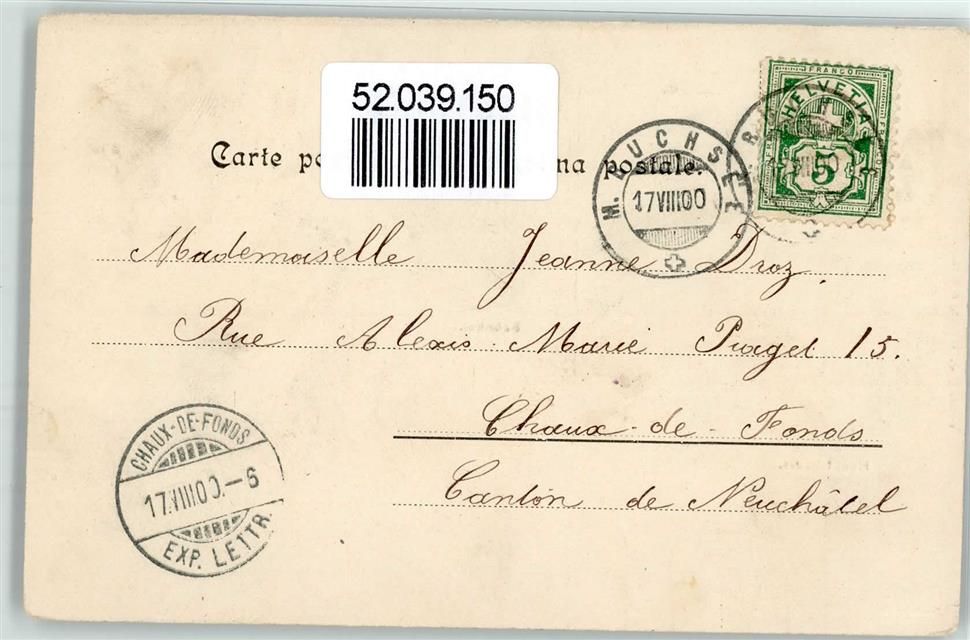 52.039.150
FRANCO
HELVETIA
5
Carte po na postale.
M. BUCHSEE
17 VIII 00
Mademoiselle Jeanne Droz,
Rue Alexis-Marie Piaget 15.
Chaux-de-Fonds
Canton de Neuchâtel
CHAUX-DE-FONDS
17.VIII.00.-6
EXP. LETTR.